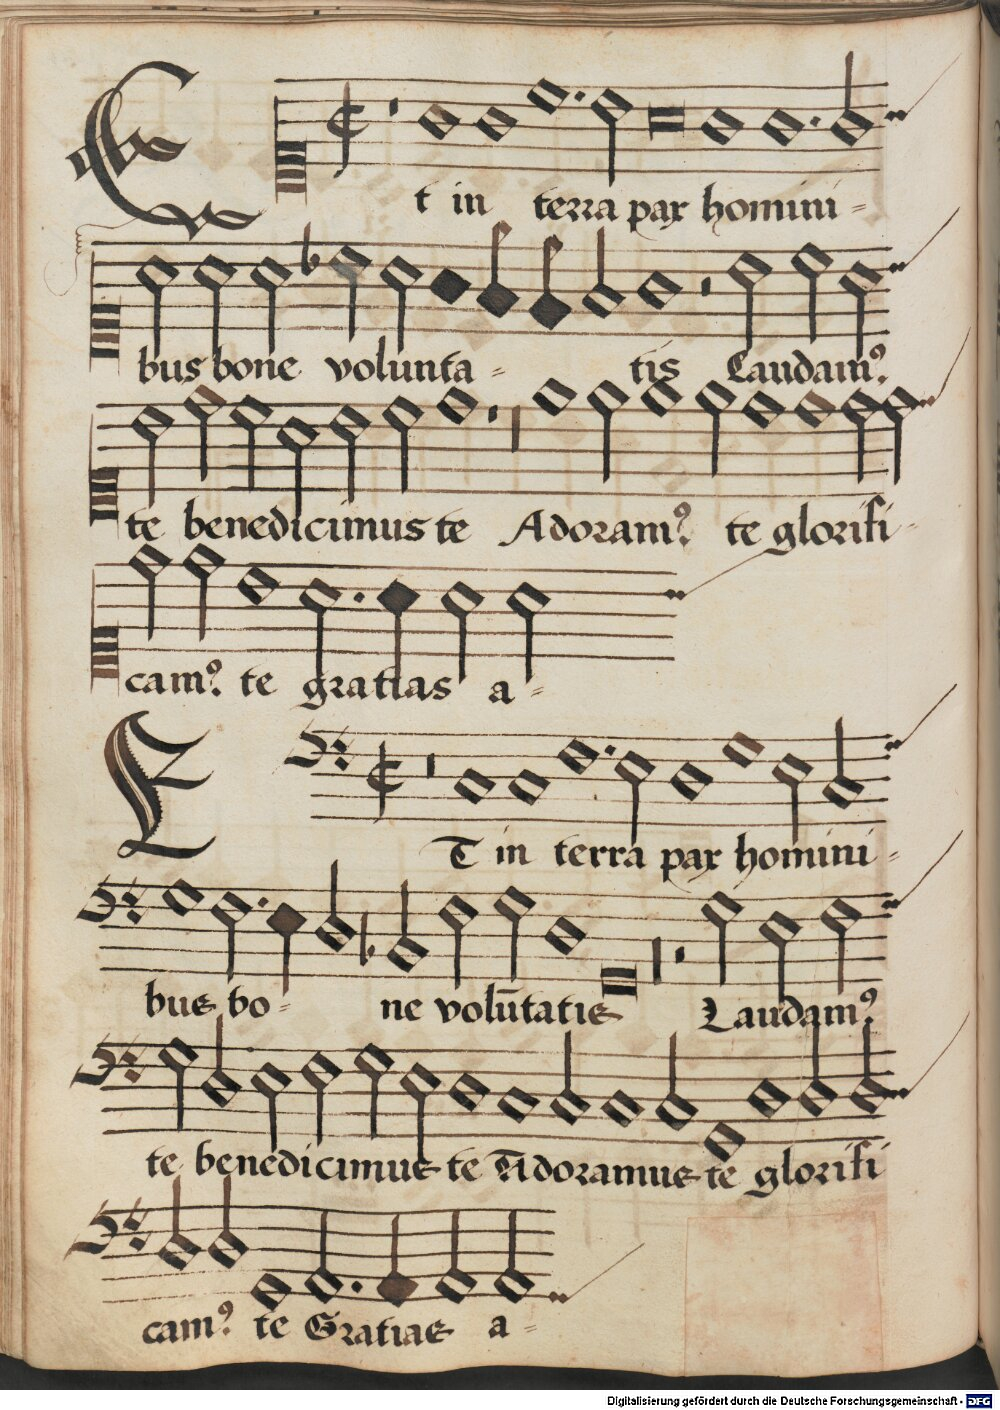 Et in terra pax homini=
bus bone volunta= tis Laudamꝰ
te benedicimus te Adoramꝰ te glorifi=
camꝰ te gratias a=
ET in terra pax homini=
bus bo= ne volūtatis Laudamꝰ
te benedicimus te Adoramus te glorifi
camꝰ te Gratias a=
Digitalisierung gefördert durch die Deutsche Forschungsgemeinschaft - DFG